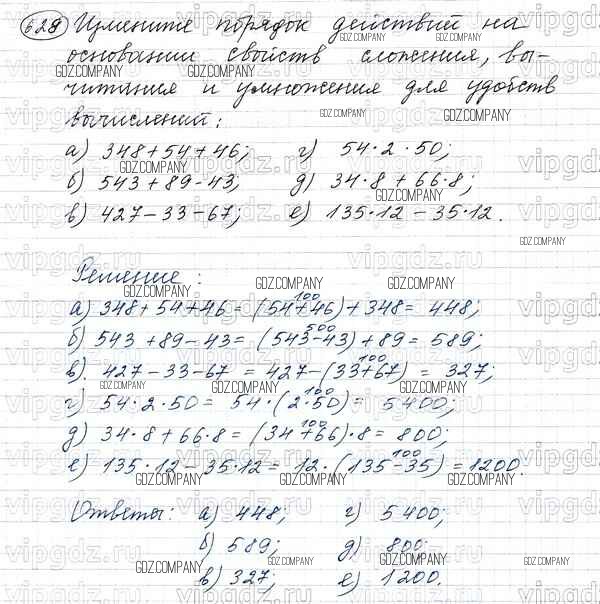 628 Измените порядок действий на
основании свойств сложения, вы-
читания и умножения для удобств
вычислений:
а) 348+54+46; г) 54·2·50;
б) 543+89-43; д) 34·8+66·8;
в) 427-33-67; е) 135·12-35·12.
Решение:
100
а) 348+54+46=(54+46)+348=448;
500
б) 543+89-43=(543-43)+89=589;
100
в) 427-33-67=427-(33+67)=327;
100
г) 54·2·50=54·(2·50)=5400;
100
д) 34·8+66·8=(34+66)·8=800;
100
е) 135·12-35·12=12·(135-35)=1200.
Ответы: а) 448; г) 5400;
б) 589; д) 800;
в) 327; е) 1200.
GDZ.COMPANY
vipgdz.ru